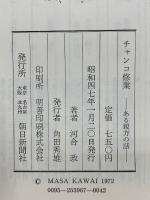 チャンコ修業 ――ある親方の話――
定価 七五〇円
昭和四七年一月二〇日発行
著者 河合政
発行者 角田秀雄
印刷所 明善印刷株式会社
発行所 東京 名古屋 大阪 北九州 朝日新聞社
© MASA KAWAI 1972
0095-253967-0042